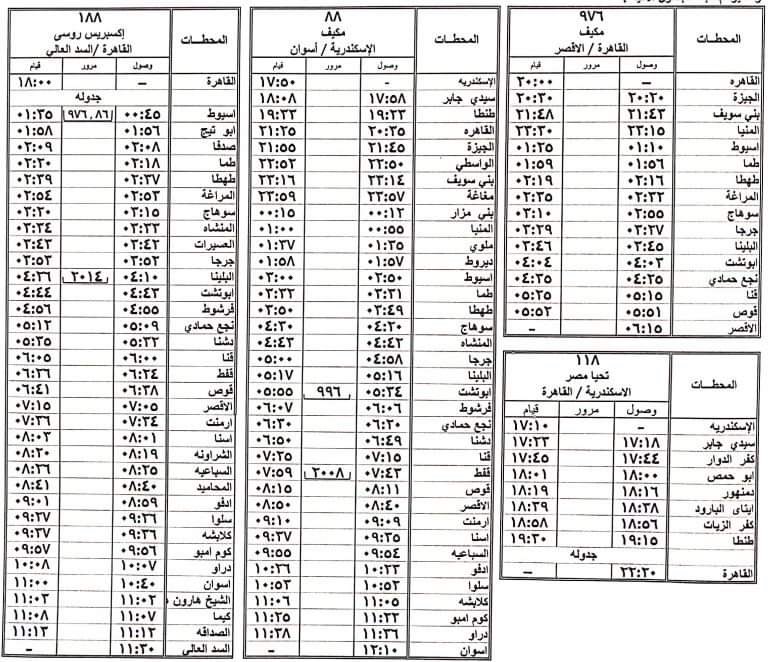 المحطات ٩٧٦
مكيف
القاهرة / الاقصر
وصول مرور قيام
القاهره – ٢٠:٠٠
الجيزة ٢٠:٢٠ ٢٠:٣٠
بني سويف ٢١:٤٣ ٢١:٤٨
المنيا ٢٣:١٥ ٢٣:٣٠
اسيوط ٠١:١٠ ٠١:٢٥
طما ٠١:٥٦ ٠١:٥٩
طهطا ٠٢:١٦ ٠٢:١٩
المراغة ٠٢:٣٢ ٠٢:٣٥
سوهاج ٠٢:٥٥ ٠٣:١٠
جرجا ٠٣:٢٧ ٠٣:٢٩
البلينا ٠٣:٤٥ ٠٣:٤٦
ابوتشت ٠٤:٠٣ ٠٤:٠٤
نجع حمادي ٠٤:٢٥ ٠٤:٣٥
قنا ٠٥:١٥ ٠٥:٢٥
قوص ٠٥:٥١ ٠٥:٥٢
الاقصر ٠٦:١٥ –
المحطات ١١٨
تحيا مصر
الاسكندرية / القاهرة
وصول مرور قيام
الإسكندريه – ١٧:١٠
سيدي جابر ١٧:١٨ ١٧:٢٣
كفر الدوار ١٧:٤٤ ١٧:٤٥
ابو حمص ١٨:٠٠ ١٨:٠١
دمنهور ١٨:١٦ ١٨:١٩
ايتاى البارود ١٨:٣٨ ١٨:٣٩
كفر الزيات ١٨:٥٦ ١٨:٥٨
طنطا ١٩:١٥ ١٩:٢٠
جدوله
القاهرة ٢٢:٢٠ –
المحطات ٨٨
مكيف
الإسكندرية / أسوان
وصول مرور قيام
الإسكندريه - ١٧:٥٠
سيدي جابر ١٧:٥٨ ١٨:٠٨
طنطا ١٩:٢٣ ١٩:٣٣
القاهره ٢٠:٣٥ ٢١:٢٥
الجيزة ٢١:٤٥ ٢١:٥٥
الواسطي ٢٢:٥٠ ٢٢:٥٢
بني سويف ٢٣:١٤ ٢٣:١٦
مغاغة ٢٣:٥٧ ٢٣:٥٩
بني مزار ٠٠:١٢ ٠٠:١٥
المنيا ٠٠:٥٥ ٠١:٠٠
ملوي ٠١:٣٥ ٠١:٣٧
ديروط ٠١:٥٧ ٠١:٥٨
اسيوط ٠٢:٥٠ ٠٣:٠٠
طما ٠٣:٣١ ٠٣:٣٢
طهطا ٠٣:٤٩ ٠٣:٥٠
سوهاج ٠٤:٢٠ ٠٤:٣٠
المنشاه ٠٤:٤٢ ٠٤:٤٣
جرجا ٠٤:٥٨ ٠٥:٠٠
البلينا ٠٥:١٦ ٠٥:١٧
ابوتشت ٠٥:٣٤ ٩٩٦ ٠٥:٥٥
فرشوط ٠٦:٠٦ ٠٦:٠٧
نجع حمادي ٠٦:٢٠ ٠٦:٣٠
دشنا ٠٦:٤٩ ٠٦:٥٠
قنا ٠٧:١٥ ٠٧:٢٥
قفط ٠٧:٤٣ ٢٠٠٨ ٠٧:٥٩
قوص ٠٨:١١ ٠٨:١٥
الأقصر ٠٨:٤٠ ٠٨:٥٠
ارمنت ٠٩:٠٩ ٠٩:١٠
اسنا ٠٩:٣٥ ٠٩:٣٧
السباعيه ٠٩:٥٤ ٠٩:٥٥
ادفو ١٠:٢٣ ١٠:٢٦
سلوا ١٠:٥٢ ١٠:٥٣
كلابشه ١١:٠٥ ١١:٠٦
كوم امبو ١١:٢٢ ١١:٢٥
دراو ١١:٣٦ ١١:٣٨
اسوان ١٢:١٠ –
المحطات ١٨٨
إكسبريس روسى
القاهرة /السد العالي
وصول مرور قيام
القاهرة – ١٨:٠٠
جدوله
اسيوط ٠٠:٤٥ ٩٧٦,٨٦ ٠١:٣٥
ابو تيج ٠١:٥٦ ٠١:٥٨
صدفا ٠٢:٠٨ ٠٢:٠٩
طما ٠٢:١٨ ٠٢:٢٠
طهطا ٠٢:٣٧ ٠٢:٣٩
المراغة ٠٢:٥٣ ٠٢:٥٤
سوهاج ٠٣:١٥ ٠٣:٢٠
المنشاه ٠٣:٣٣ ٠٣:٣٤
العصيرات ٠٣:٤٢ ٠٣:٤٣
جرجا ٠٣:٥٢ ٠٣:٥٣
البلينا ٠٤:١٠ ٢٠١٤ ٠٤:٢٦
ابوتشت ٠٤:٤٣ ٠٤:٤٤
فرشوط ٠٤:٥٥ ٠٤:٥٦
نجع حمادي ٠٥:٠٩ ٠٥:١٢
دشنا ٠٥:٣٢ ٠٥:٣٥
قنا ٠٦:٠٠ ٠٦:٠٥
قفط ٠٦:٢٤ ٠٦:٢٦
قوص ٠٦:٣٨ ٠٦:٤١
الاقصر ٠٧:٠٥ ٠٧:١٥
ارمنت ٠٧:٣٤ ٠٧:٣٦
اسنا ٠٨:٠١ ٠٨:٠٣
الشراونه ٠٨:١٩ ٠٨:٢٠
السباعيه ٠٨:٢٥ ٠٨:٢٦
المحاميد ٠٨:٤٠ ٠٨:٤١
ادفو ٠٨:٥٩ ٠٩:٠١
سلوا ٠٩:٢٦ ٠٩:٢٧
كلابشه ٠٩:٣٦ ٠٩:٣٧
كوم امبو ٠٩:٥٦ ٠٩:٥٧
دراو ١٠:٠٧ ١٠:٠٨
اسوان ١٠:٤٠ ١١:٠٠
الشيخ هارون ١١:٠٢ ١١:٠٣
كيما ١١:٠٧ ١١:٠٨
الصداقه ١١:١٢ ١١:١٣
السد العالي ١١:٣٠ –